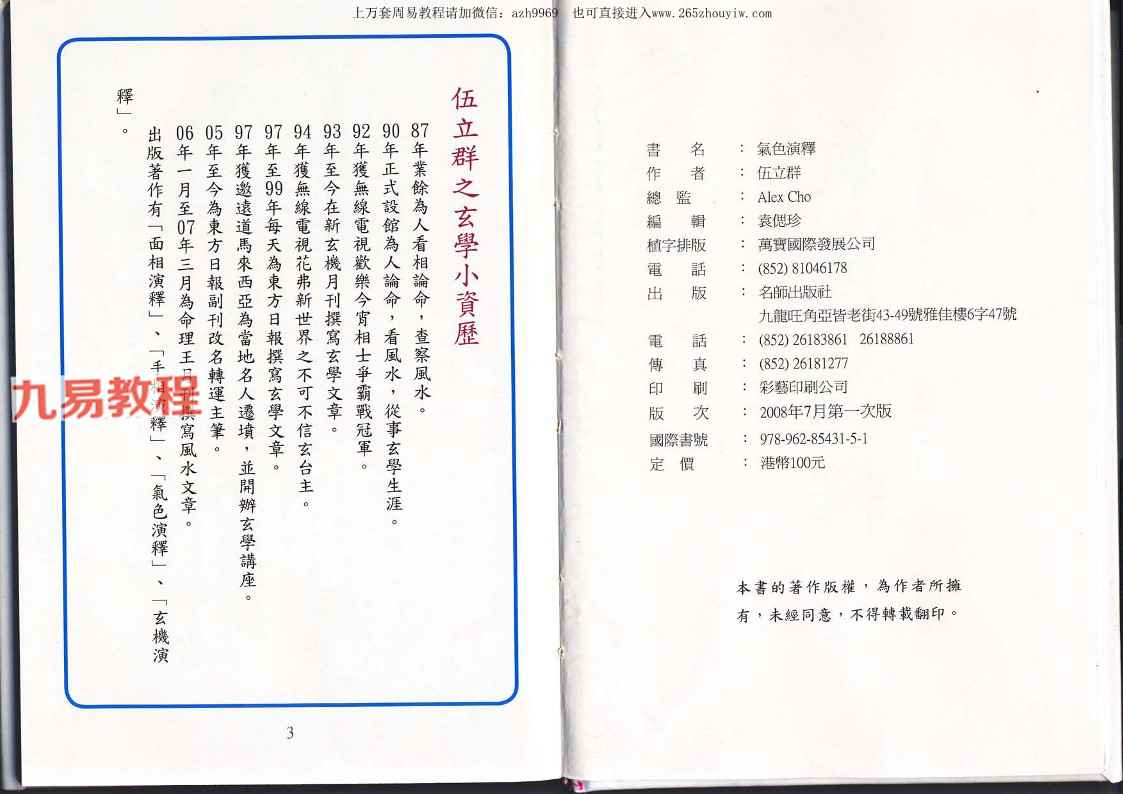 上万套周易教程请加微信：azh9969 也可直接进入www.265zhouyiw.com
伍立群之玄學小資歷
87年業餘為人看相論命，查察風水。
90年正式設館為人論命，看風水，從事玄學生涯。
92年獲無線電視歡樂今宵相士爭霸戰冠軍。
93年至今在新玄機月刊撰寫玄學文章。
94年獲無線電視花弗新世界之不可不信玄台主。
97年至99年每天為東方日報撰寫玄學文章。
97年獲邀遠道馬來西亞為當地名人遷墳，並開辦玄學講座。
05年至今為東方日報副刊改名轉運主筆。
06年一月至07年三月為命理王日刊撰寫風水文章。
出版著作有「面相演釋」、「手相演釋」、「氣色演釋」、「玄機演
釋」。
九易教程
3
書名：氣色演釋
作者：伍立群
總監：Alex Cho
編輯：袁偲珍
植字排版：萬寶國際發展公司
電話：(852) 81046178
出版：名師出版社
九龍旺角亞皆老街43-49號雅佳樓6字47號
電話：(852) 26183861 26188861
傳真：(852) 26181277
印刷：彩藝印刷公司
版次：2008年7月第一次版
國際書號：978-962-85431-5-1
定價：港幣100元
本書的著作版權，為作者所擁
有，未經同意，不得轉載翻印。